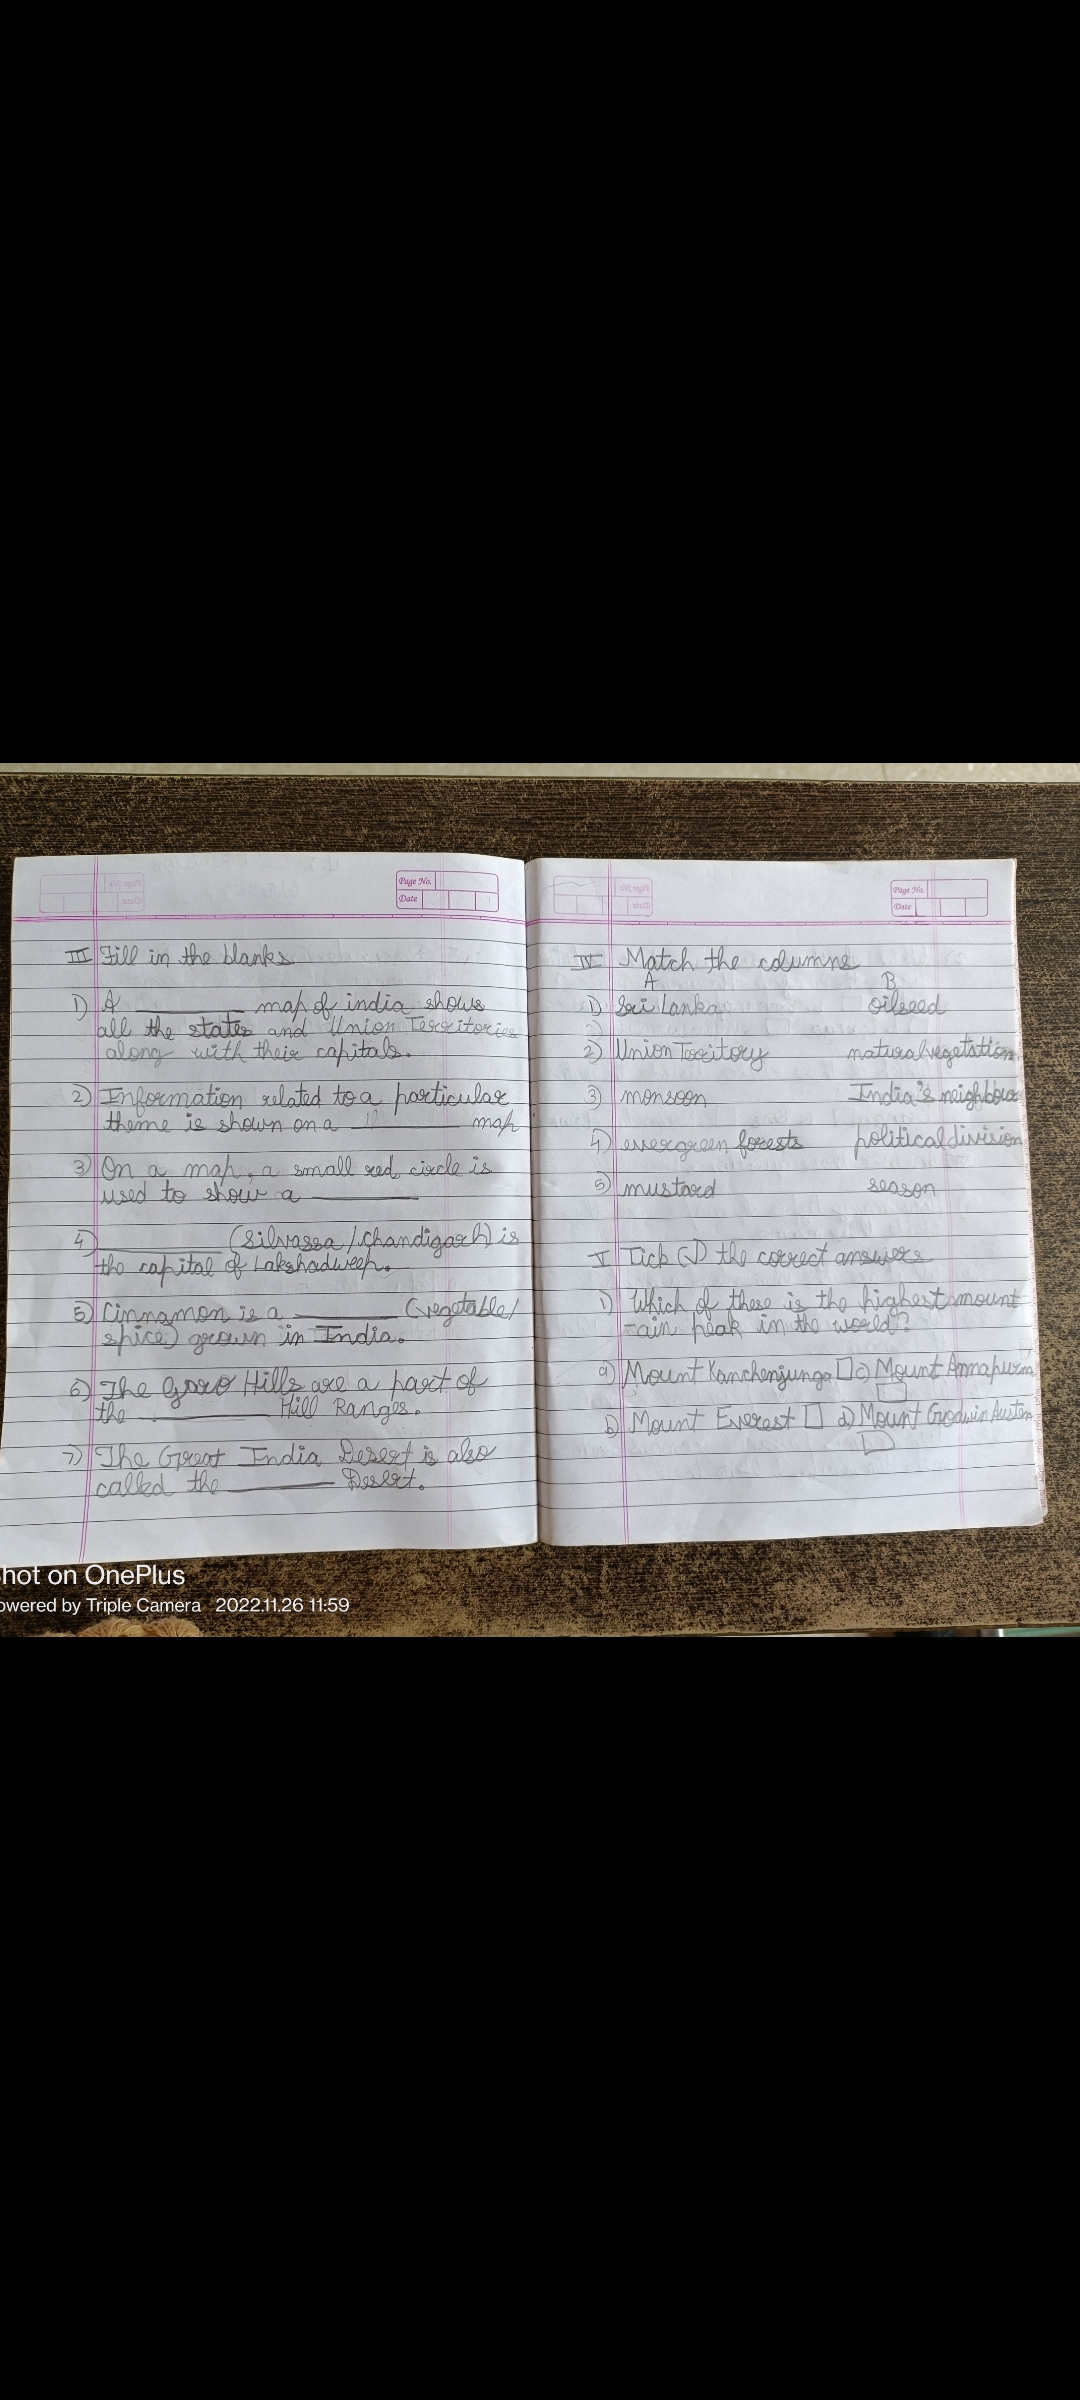 Page No.
Date
III Fill in the blanks
1) A ________ map of india shows
all the states and Union Territories
along with their capitals.
2) Information related to a particular
theme is shown on a ________ map
3) On a map, a small red circle is
used to show a ________
4) ________ (Silvassa / Chandigarh) is
the capital of Lakshadweep.
5) Cinnamon is a ________ (vegetable/
spice) grown in India.
6) The Garo Hills are a part of
the ________ Hill Ranges.
7) The Great India Desert is also
called the ________ Desert.
Page No.
Date
IV Match the columns
A B
1) Sri Lanka oilseed
2) Union Territory natural vegetation
3) monsoon India's neighbour
4) evergreen forests political division
5) mustard season
V Tick (✓) the correct answers
1) Which of these is the highest mount
-ain peak in the world?
a) Mount Kanchenjunga □ c) Mount Annapurna
□
b) Mount Everest □ d) Mount Godwin Austen
□
hot on OnePlus
owered by Triple Camera 2022.11.26 11:59